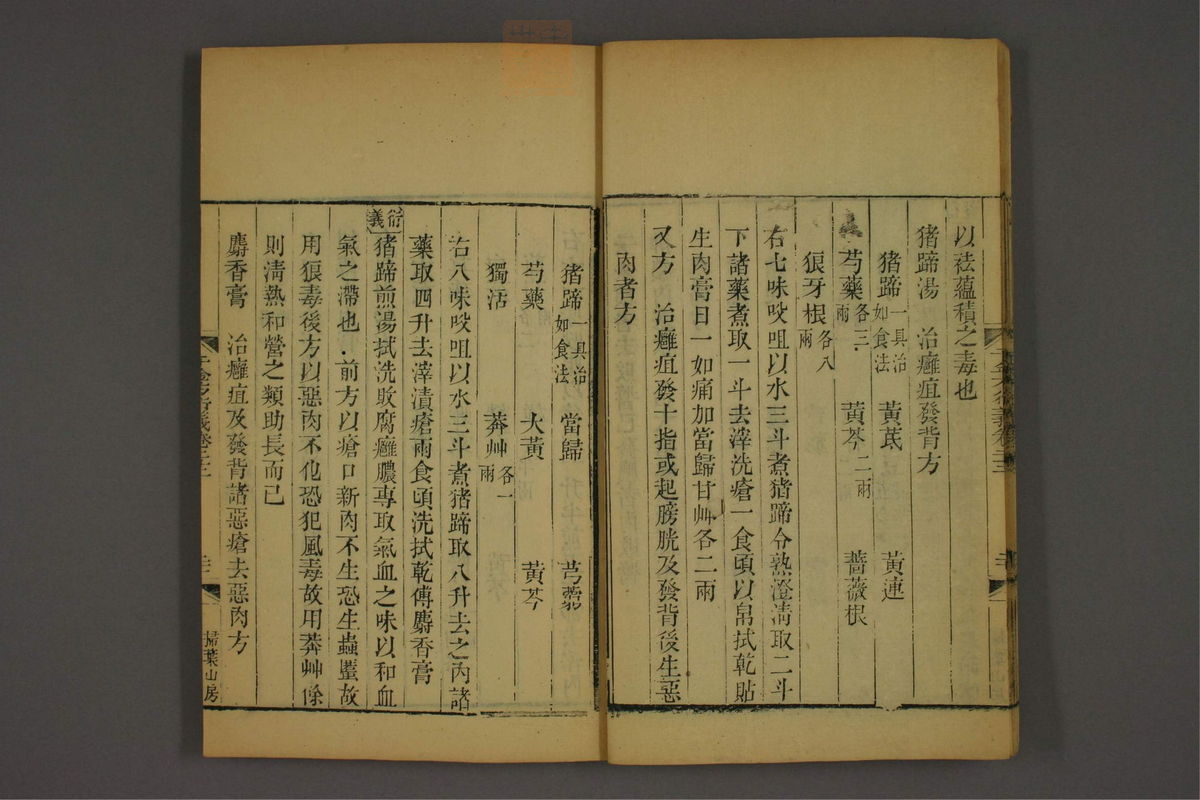 以祛蘊積之毒也
猪蹄湯　治癰疽發背方
猪蹄一具治如食法　黃芪　黃連
芍藥各三兩　黃芩二兩　薔薇根
狼牙根各八兩
右七味㕮咀以水三斗煮猪蹄令熟澄清取二斗
下諸藥煮取一斗去滓洗瘡一食頃以帛拭乾貼
生肉膏日一如痛加當歸甘艸各二兩
又方　治癰疽發十指或起膀胱及發背後生惡
肉者方
猪蹄一具治如食法　當歸　芎藭
芍藥　大黃　黃芩
獨活　莽艸各一兩
右八味㕮咀以水三斗煮猪蹄取八升去之內諸
藥取四升去滓漬瘡兩食頃洗拭乾傅麝香膏
衍義
猪蹄煎湯拭洗敗腐癰膿專取氣血之味以和血
氣之滯也前方以瘡口新肉不生恐生蟲䘌故
用狼毒後方以惡肉不化恐犯風毒故用莽艸餘
則清熱和營之類助長而已
麝香膏　治癰疽及發背諸惡瘡去惡肉方
千金方衍義卷二十二
掃葉山房